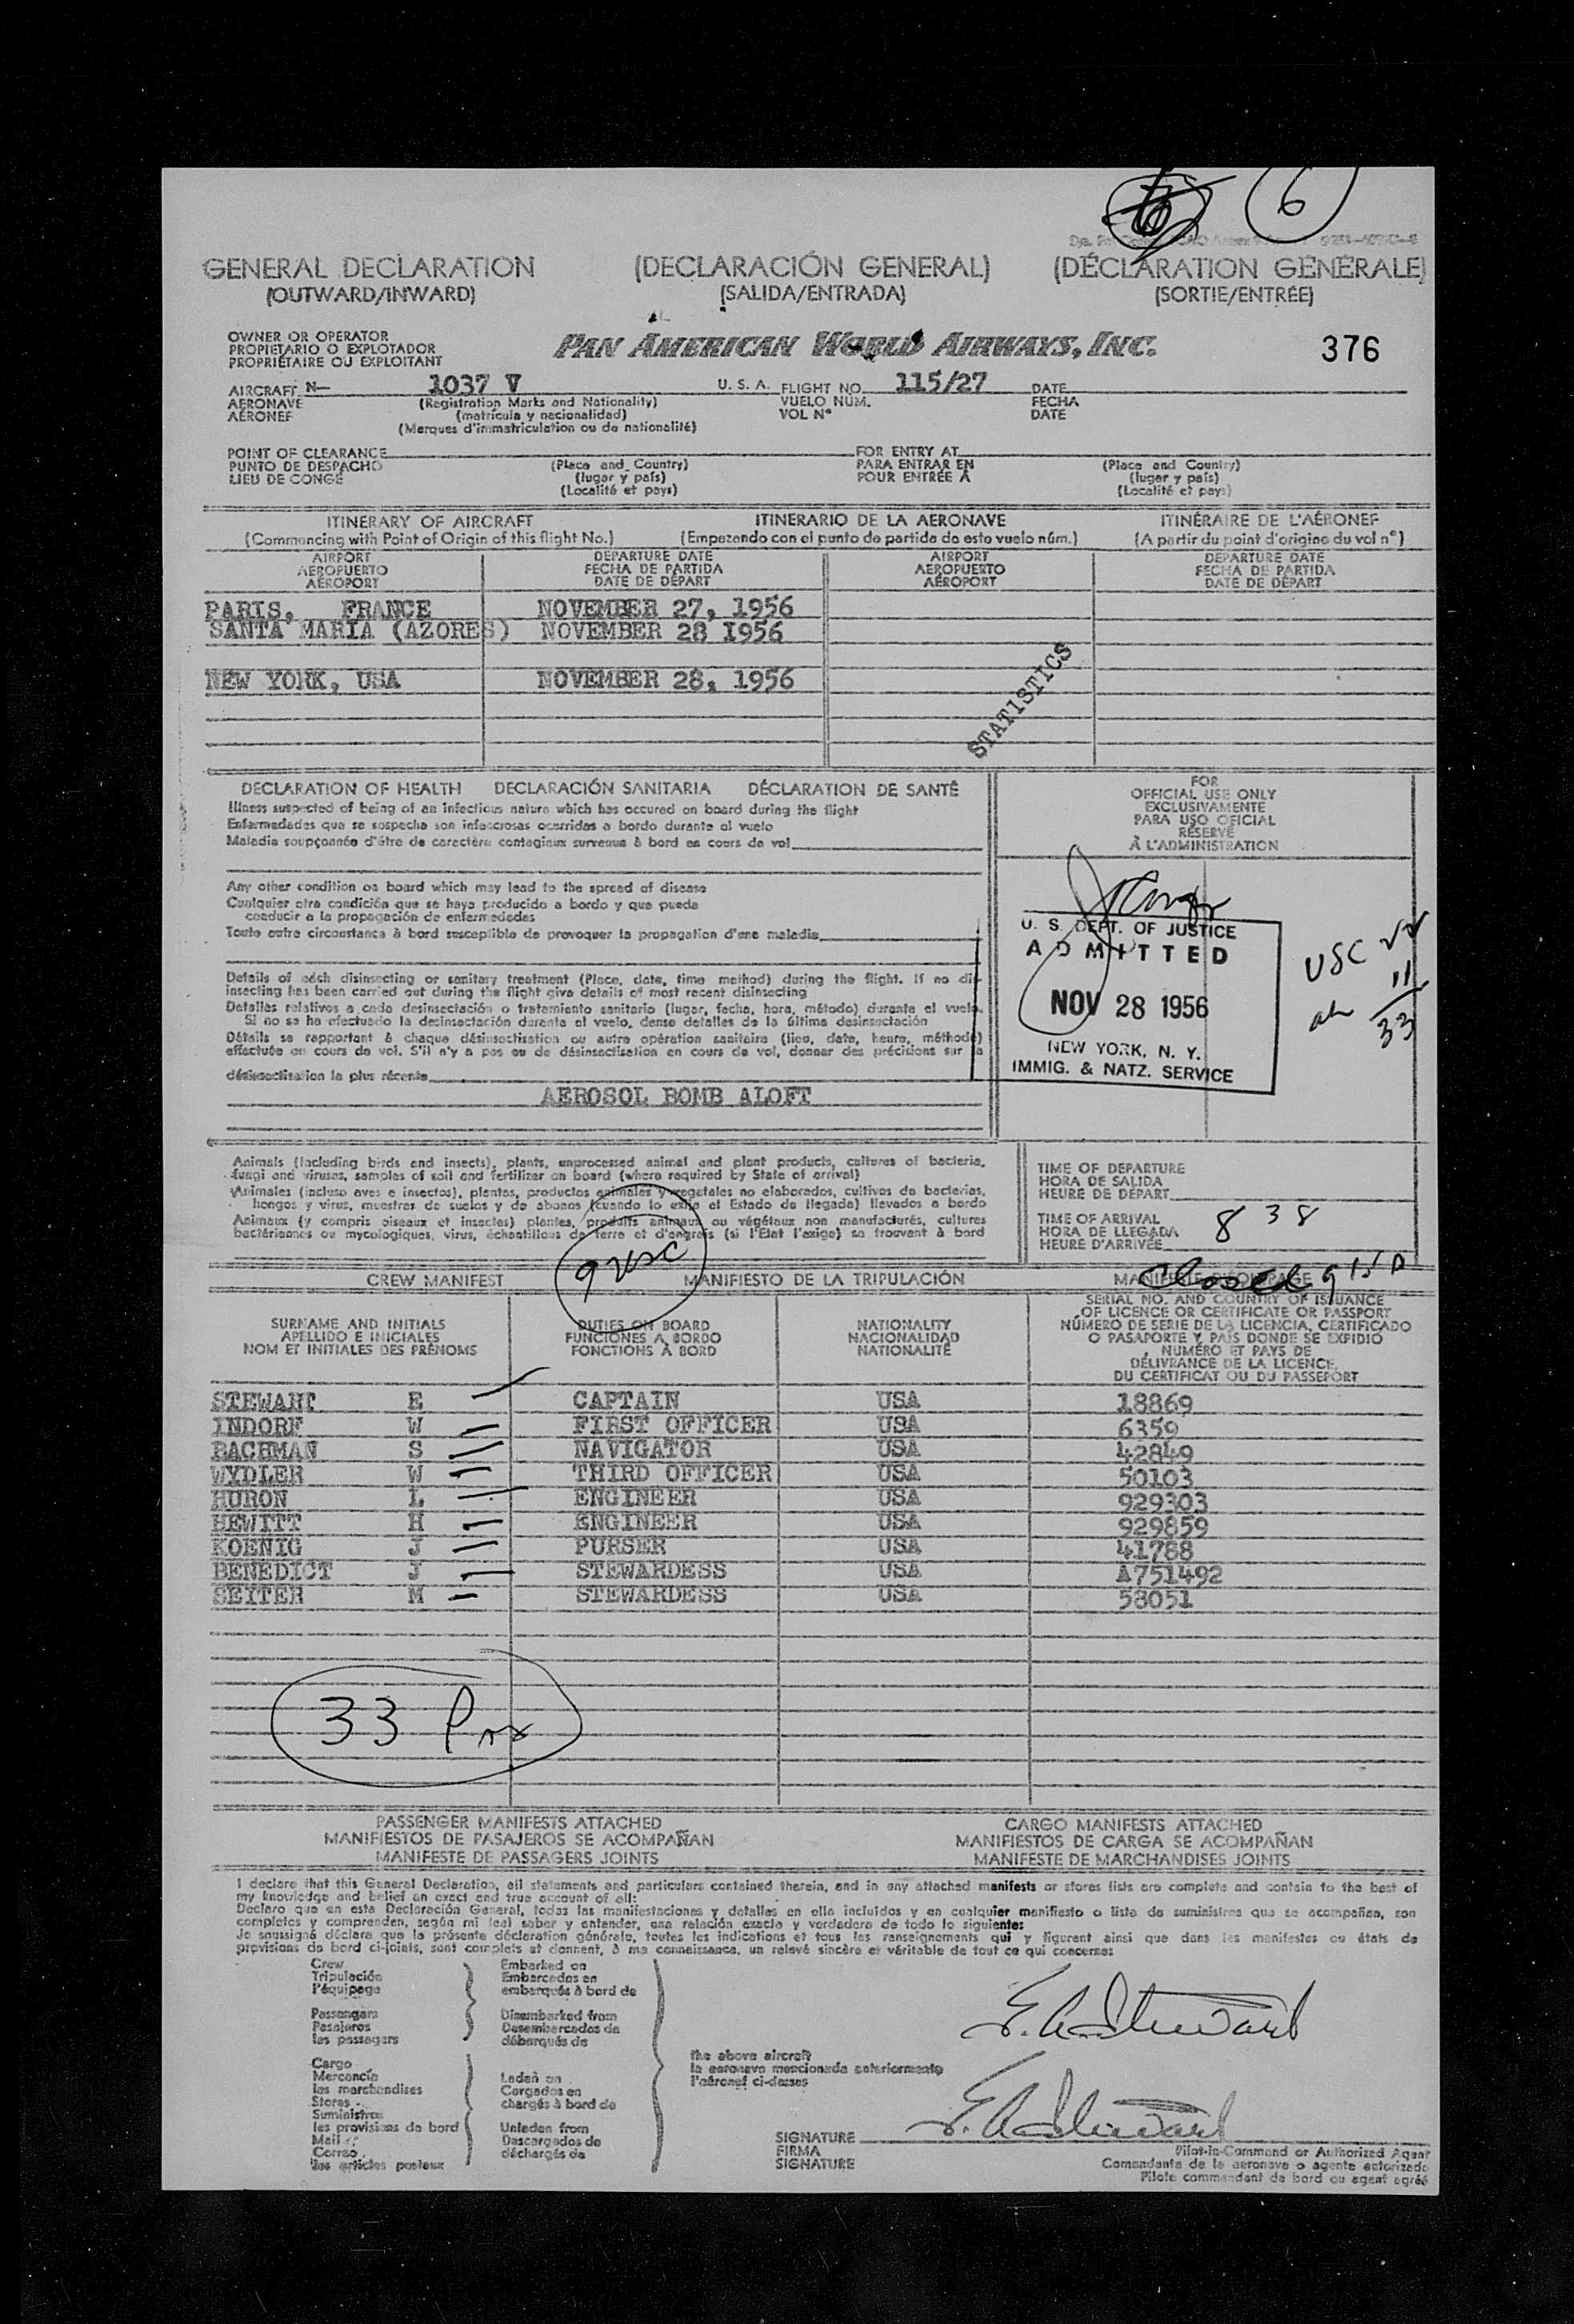 6
GENERAL DECLARATION (DECLARACIÓN GENERAL) (DÉCLARATION GÉNÉRALE)
(OUTWARD/INWARD) (SALIDA/ENTRADA) (SORTIE/ENTRÉE)
OWNER OR OPERATOR
PROPIETARIO O EXPLOTADOR
PROPRIÉTAIRE OU EXPLOITANT
PAN AMERICAN WORLD AIRWAYS, INC.
376
AIRCRAFT N— 1037 V U. S. A. FLIGHT NO. 115/27 DATE
AERONAVE (Registration Marks and Nationality) VUELO NÚM. FECHA
AÉRONEF (matrícula y nacionalidad) VOL N° DATE
(Marques d'immatriculation ou de nationalité)
POINT OF CLEARANCE FOR ENTRY AT
PUNTO DE DESPACHO (Place and Country) PARA ENTRAR EN (Place and Country)
LIEU DE CONGÉ (lugar y país) POUR ENTRÉE À (lugar y país)
(Localité et pays) (Localité et pays)
ITINERARY OF AIRCRAFT ITINERARIO DE LA AERONAVE ITINÉRAIRE DE L'AÉRONEF
(Commencing with Point of Origin of this flight No.) (Empezando con el punto de partida de este vuelo núm.) (A partir du point d'origine du vol n°)
AIRPORT DEPARTURE DATE AIRPORT DEPARTURE DATE
AEROPUERTO FECHA DE PARTIDA AEROPUERTO FECHA DE PARTIDA
AÉROPORT DATE DE DÉPART AÉROPORT DATE DE DÉPART
PARIS, FRANCE NOVEMBER 27, 1956
SANTA MARIA (AZORES) NOVEMBER 28 1956
NEW YORK, USA NOVEMBER 28, 1956
STATISTICS
DECLARATION OF HEALTH DECLARACIÓN SANITARIA DÉCLARATION DE SANTÉ
Illness suspected of being of an infectious nature which has occured on board during the flight
Enfermedades que se sospecha son infecciosas ocurridas a bordo durante el vuelo
Maladie soupçonnée d'être de caractère contagieux survenue à bord en cours de vol
Any other condition on board which may lead to the spread of disease
Cualquier otra condición que se haya producido a bordo y que pueda
conducir a la propagación de enfermedades
Toute autre circonstance à bord susceptible de provoquer la propagation d'une maladie
Details of each disinsecting or sanitary treatment (Place, date, time method) during the flight. If no dis-
insecting has been carried out during the flight give details of most recent disinsecting
Detalles relativos a cada desinsectación o tratamiento sanitario (lugar, fecha, hora, método) durante el vuelo.
Si no se ha efectuado la desinsectación durante el vuelo, dense detalles de la última desinsectación
Détails se rapportant à chaque désinsectisation ou autre opération sanitaire (lieu, date, heure, méthode)
effectuée en cours de vol. S'il n'y a pas eu de désinsectisation en cours de vol, donner des précisions sur la
désinsectisation la plus récente
AEROSOL BOMB ALOFT
FOR
OFFICIAL USE ONLY
EXCLUSIVAMENTE
PARA USO OFICIAL
RÉSERVÉ
À L'ADMINISTRATION
U. S. DEPT. OF JUSTICE
ADMITTED
NOV 28 1956
NEW YORK, N. Y.
IMMIG. & NATZ. SERVICE
USC 22
al 11
33
Animals (including birds and insects), plants, unprocessed animal and plant products, cultures of bacteria,
fungi and viruses, samples of soil and fertilizer on board (where required by State of arrival)
Animales (incluso aves e insectos), plantas, productos animales y vegetales no elaborados, cultivos de bacterias,
hongos y virus, muestras de suelos y de abonos (cuando lo exija el Estado de llegada) llevados a bordo
Animaux (y compris oiseaux et insectes) plantes, produits animaux ou végétaux non manufacturés, cultures
bactériennes ou mycologiques, virus, échantillons de terre et d'engrais (si l'Etat l'exige) se trouvant à bord
TIME OF DEPARTURE
HORA DE SALIDA
HEURE DE DÉPART
TIME OF ARRIVAL
HORA DE LLEGADA
HEURE D'ARRIVÉE
8 38
9 USC
Closed 915
CREW MANIFEST MANIFIESTO DE LA TRIPULACIÓN MANIFESTE D'ÉQUIPAGE
SURNAME AND INITIALS
APELLIDO E INICIALES
NOM ET INITIALES DES PRÉNOMS
DUTIES ON BOARD
FUNCIONES A BORDO
FONCTIONS À BORD
NATIONALITY
NACIONALIDAD
NATIONALITÉ
SERIAL NO. AND COUNTRY OF ISSUANCE
OF LICENCE OR CERTIFICATE OR PASSPORT
NÚMERO DE SERIE DE LA LICENCIA, CERTIFICADO
O PASAPORTE Y PAÍS DONDE SE EXPIDIÓ
NUMÉRO ET PAYS DE
DÉLIVRANCE DE LA LICENCE,
DU CERTIFICAT OU DU PASSEPORT
STEWART E CAPTAIN USA 18869
INDORF W FIRST OFFICER USA 6359
BACHMAN S NAVIGATOR USA 42849
WYDLER W THIRD OFFICER USA 50103
HURON L ENGINEER USA 929303
HEWITT H ENGINEER USA 929859
KOENIG J PURSER USA 41788
BENEDICT J STEWARDESS USA A751492
SEITER M STEWARDESS USA 58051
33 Pax
PASSENGER MANIFESTS ATTACHED CARGO MANIFESTS ATTACHED
MANIFIESTOS DE PASAJEROS SE ACOMPAÑAN MANIFIESTOS DE CARGA SE ACOMPAÑAN
MANIFESTE DE PASSAGERS JOINTS MANIFESTE DE MARCHANDISES JOINTS
I declare that this General Declaration, all statements and particulars contained therein, and in any attached manifests or stores lists are complete and contain to the best of
my knowledge and belief an exact and true account of all:
Declaro que en esta Declaración General, todas las manifestaciones y detalles en ella incluidos y en cualquier manifiesto o lista de suministros que se acompañan, son
completos y comprenden, según mi leal saber y entender, una relación exacta y verdadera de todo lo siguiente:
Je soussigné déclare que la présente déclaration générale, toutes les indications et tous les renseignements qui y figurent ainsi que dans les manifestes ou états de
provisions de bord ci-joints, sont complets et donnent, à ma connaissance, un relevé sincère et véritable de tout ce qui concerne:
Crew
Tripulación
l'équipage
Passengers
Pasajeros
les passagers
Cargo
Mercancía
les marchandises
Stores
Suministros
les provisions de bord
Mail
Correo
les articles postaux
Embarked on
Embarcados en
embarqués à bord de
Disembarked from
Desembarcados de
débarqués de
Laden on
Cargados en
chargés à bord de
Unladen from
Descargados de
déchargés de
the above aircraft
la aeronave mencionada anteriormente
l'aéronef ci-dessus
E. A. Stewart
E. A. Stewart
SIGNATURE
FIRMA
SIGNATURE
Pilot-in-Command or Authorized Agent
Comandante de la aeronave o agente autorizado
Pilote commandant de bord ou agent agréé